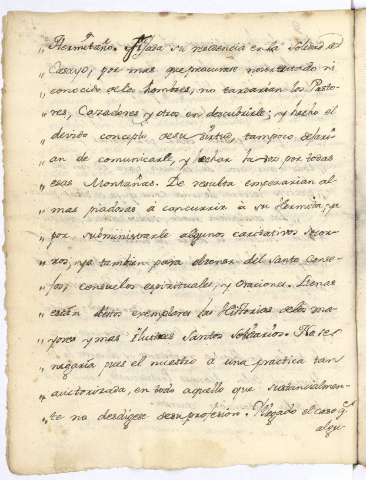 „ Hermitaño. Fixada su residencia en la Soledad del
„ Casayo, por mas que procurase no ser tratado ni
„ conocido de los hombres, no tardarian los Pasto-
„ res, Cazadores y otros en descubrirle; y hecho el
„ devido concepto de su virtud, tampoco dejari-
„ an de comunicarle, y hechar la voz por todas
„ esas Montañas. De resulta empezarian al-
„ mas piadosas á concurrir á su Hermita; ya
„ por subministrarle algunos caritativos socor-
„ ros, ya tambien para obtener del Santo Conse-
„ jos, consuelos espirituales, y Oraciones. Llenas
„ están destos exemplares las Historias de los ma-
„ yores y mas ilustres Santos Solitarios. No se
„ negaría pues el nuestro á una practica tan
„ auctorizada, en todo aquello que substancialmen-
„ te no desdigese de su profesion. Llegado el caso q.e
algu-